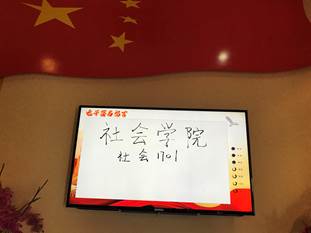 社会学院
社会1701